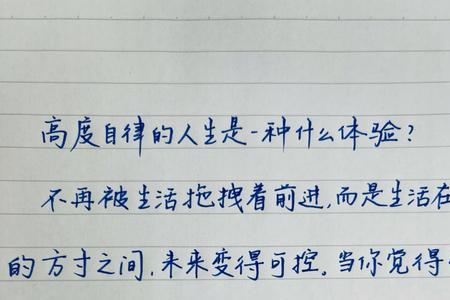 高度自律的人生是一种什么体验?
不再被生活拖拽着前进,而是生活在
的方寸之间,未来变得可控。当你觉得